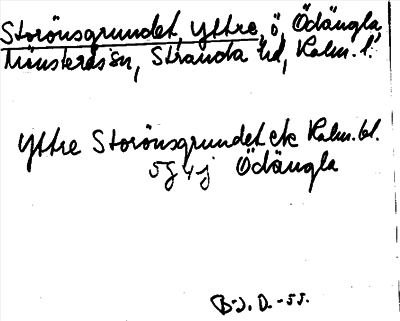 Storönsgrundet, Yttre, ö, Ödängla,
Misterhults sn, Stranda hd, Kalm. l.
Yttre Storönsgrundet ek Kalm. bl.
5g4j Ödängla
B-J. D. -55.